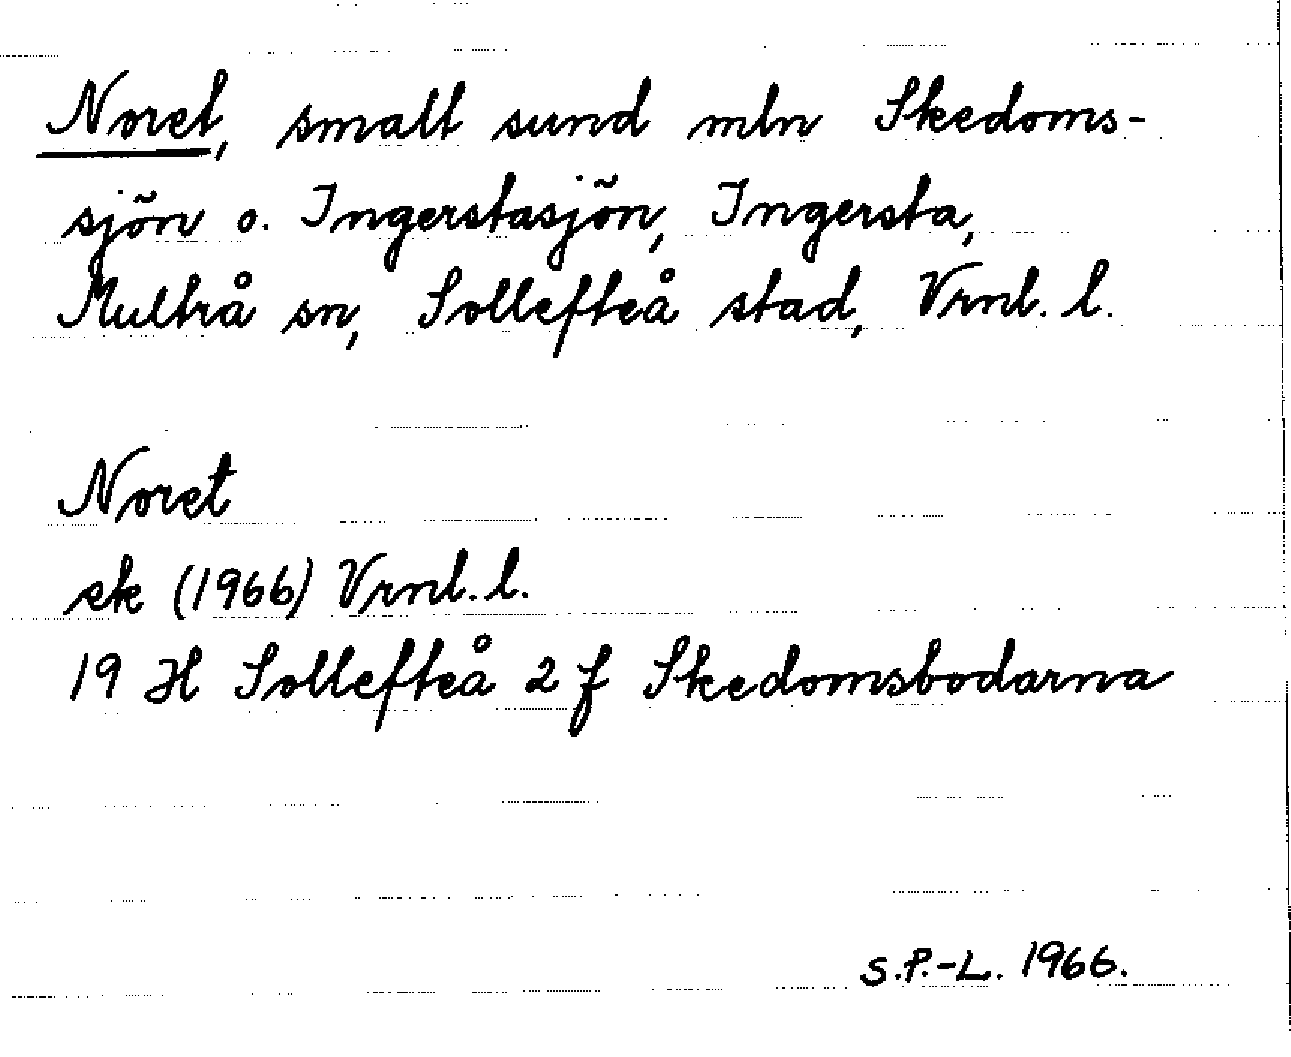 Noret, smalt sund mln Skedoms-
sjön o. Ingerstasjön, Ingersta,
Multrå sn, Sollefteå stad, Vrnl. l.
Noret
ek (1966) Vrnl. l.
19 H Sollefteå 2 f Skedomsbodarna
S.P.-L. 1966.